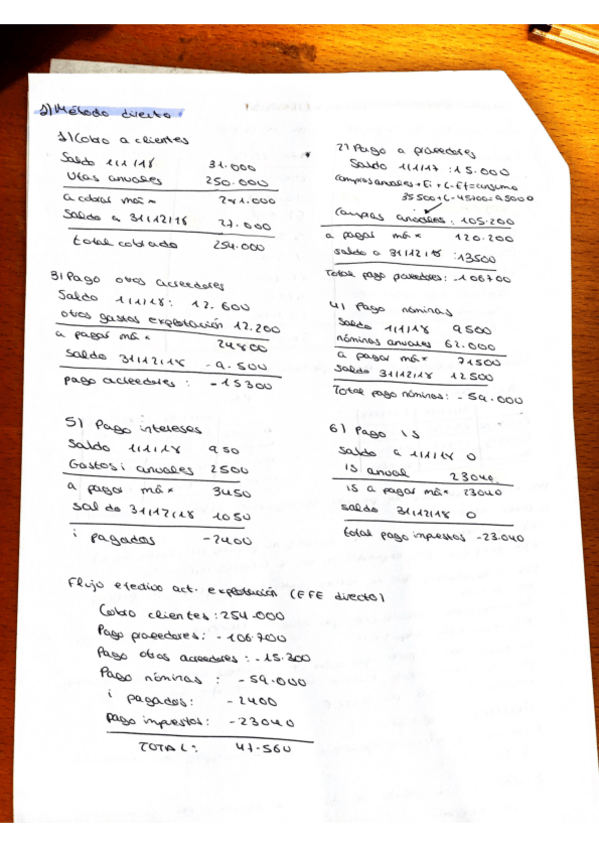 2) Método directo
1) Cobro a clientes
Saldo 1/1/18 31.000
Vtas anuales 250.000
a cobrar máx 281.000
Saldo a 31/12/18 27.000
total cobrado 254.000
2) Pago a proveedores
Saldo 1/1/17 : 15.000
compras anuales + Ei + C - Ef = consumo
35500 + C - 45700 = 95000
Compras anuales: 105.200
a pagar máx 120.200
saldo a 31/12/18 : 13500
Total pago proveedores: -106700
3) Pago otros acreedores
Saldo 1/1/18: 12.600
otros gastos explotación 12.200
a pagar máx 24800
Saldo 31/12/18 -9.500
pago acreedores : -15300
4) Pago nóminas
Saldo 1/1/18 9500
nóminas anuales 62.000
a pagar máx 71500
Saldo 31/12/18 12500
Total pago nóminas: -59.000
5) Pago intereses
Saldo 1/1/18 950
Gastos i anuales 2500
a pagar máx 3450
saldo 31/12/18 1050
i pagados -2400
6) Pago IS
Saldo a 1/1/18 0
IS anual 23040
IS a pagar máx 23040
saldo 31/12/18 0
total pago impuestos -23.040
Flujo efectivo act. explotación (EFE directo)
Cobro clientes: 254.000
Pago proveedores: -106.700
Pago otros acreedores: -15.300
Pago nóminas : -59.000
i pagados: -2400
pago impuestos: -23040
TOTAL: 47.560